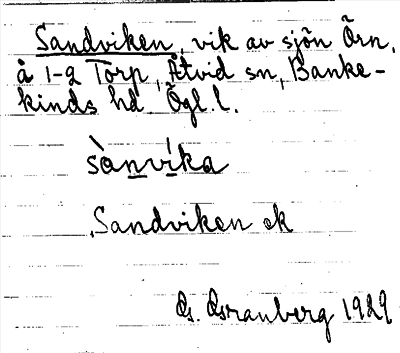 Sandviken, vik av sjön Örn,
å 1-2 Torp, Åtvid sn, Banke-
kinds hd. Ögl. l.
sànvíka
Sandviken ek
G. Granberg 1929